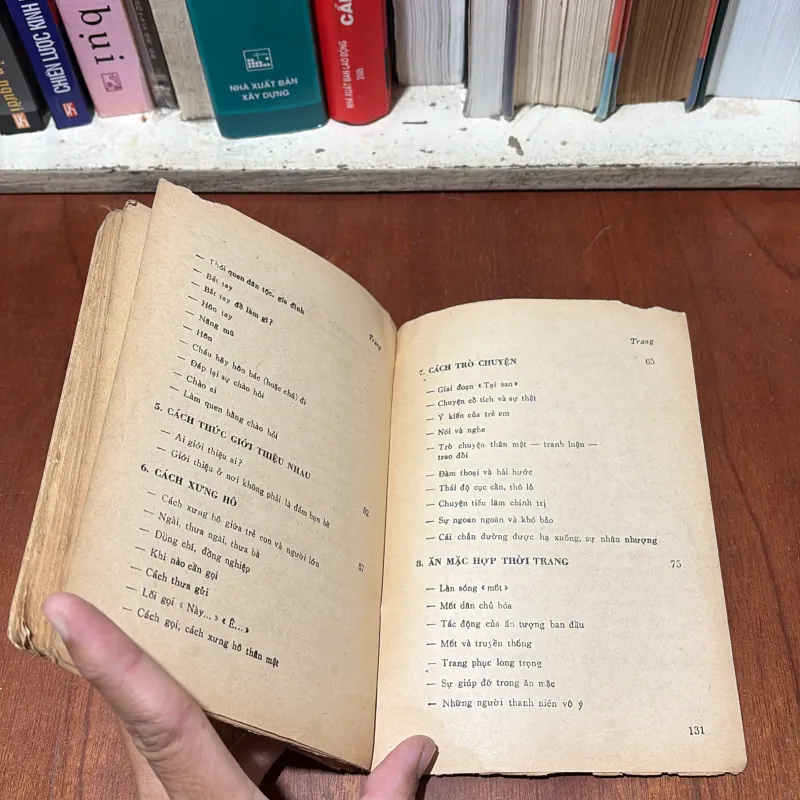 CHIẾN LƯỢC KINH
bụi
NHÀ XUẤT BẢN
XÂY DỰNG
NHÀ XUẤT BẢN LAO ĐỘNG
CẨ
Trang
— Thói quen dân tộc, gia đình
— Bắt tay
— Bắt tay đề làm gì?
— Hôn tay
— Nâng mũ
— Hôn
— Cháu hãy hôn bác (hoặc chú) đi
— Đáp lại sự chào hỏi
— Chào ai
— Làm quen bằng chào hỏi
5. CÁCH THỨC GIỚI THIỆU NHAU 52
— Ai giới thiệu ai?
— Giới thiệu ở nơi không phải là đám bạn bè
6. CÁCH XƯNG HÔ 57
— Cách xưng hô giữa trẻ con và người lớn
— Ngài, thưa ngài, thưa bà
— Đồng chí, đồng nghiệp
— Khi nào cần gọi
— Cách thưa gửi
— Lối gọi « Này...» « Ê...»
— Cách gọi, cách xưng hô thân mật
Trang
7. CÁCH TRÒ CHUYỆN 65
— Giai đoạn «Tại sao»
— Chuyện cồ tích và sự thật
— Ý kiến của trẻ em
— Nói và nghe
— Trò chuyện thân mật — tranh luận —
trao đồi
— Đàm thoại và hài hước
— Thái độ cục cằn, thô lỗ
— Chuyện tiếu lâm chính trị
— Sự ngoan ngoãn và khó bảo
— Cái chắn đường được hạ xuống, sự nhân nhượng
8. ĂN MẶC HỢP THỜI TRANG 75
— Làn sóng «mốt»
— Mốt dân chủ hóa
— Tác động của ấn tượng ban đầu
— Mốt và truyền thống
— Trang phục long trọng
— Sự giúp đỡ trong ăn mặc
— Những người thanh niên vô ý
131